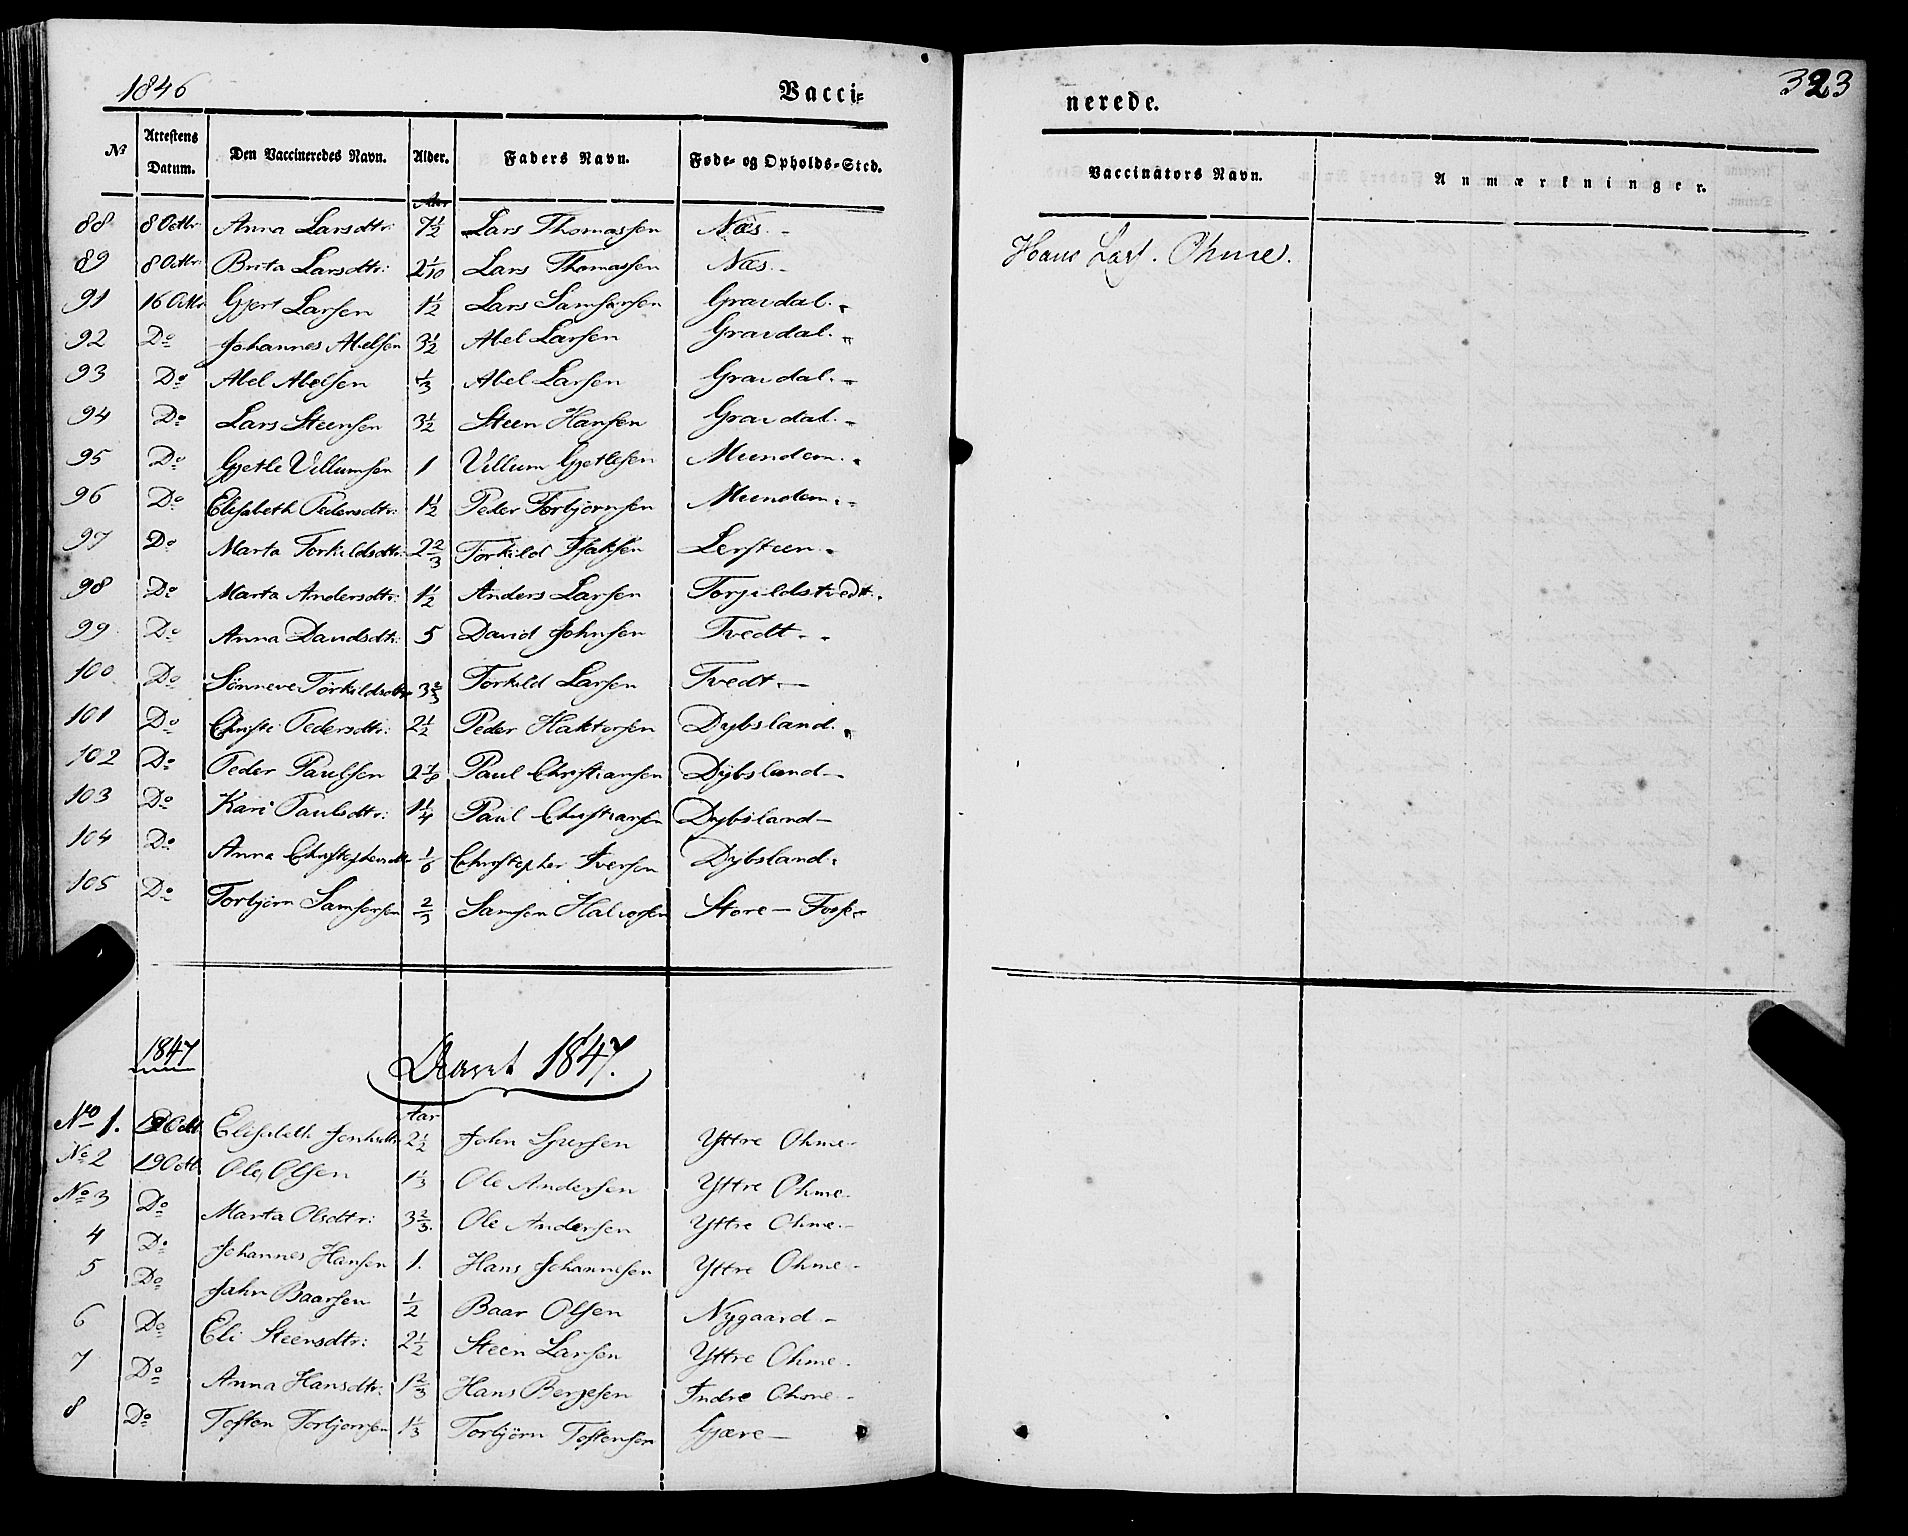 1846 Vacci-
nerede. 323
No Attestens Datum. Den Vaccineredes Navn. Alder. Faders Navn. Føde- og Opholds-Sted. Vaccinators Navn. Anmærkninger.
Aar
88 8 Octbr. Anna Larsdtr: 7½ Lars Thomassen Næs.- Hans Lars. Ohme.
89 8 Octbr. Brita Larsdtr: 2 1/10 Lars Thomassen Næs.-
91 16 Octbr Gjert Larsen 1½ Lars Samsonsen Gravdal.-
92 Do Johannes Abelsen 3½ Abel Larsen Gravdal.
93 Do Abel Abelsen ⅓ Abel Larsen Gravdal.-
94 Do Lars Steensen 3½ Steen Hansen Gravdal.-
95 Do Gjetle Villumsen 1 Villum Gjetlesen Mundem.
96 Do Elisabeth Pedersdtr: 1½ Peder Torbjørnsen Mundem.-
97 Do Marta Torkildsdtr: 2⅔ Torkild Isaksen Lersteen.-
98 Do Marta Andersdtr: 1½ Anders Larsen Torgildstvedt.
99 Do Anna Davidsdtr: 5 David Johnsen Tvedt.-
100 Do Sönneve Torkildsdtr 3⅔ Torkild Larsen Tvedt.-
101 Do Christi Pedersdtr: 2½ Peder Haktorsen Dybsland.
102 Do Peder Paulsen 2⅛ Paul Christiansen Dybsland-
103 Do Kari Paulsdtr: 1¼ Paul Christiansen Dybsland-
104 Do Anna Christophersdtr ⅙ Christopher Iversen Dybsland.
105 Do Torbjörn Samsonsen ⅔ Samson Halvorsen Store-Fosse-
1847 Aaret 1847.
Aar
No 1. Octb Elisabeth Johnsdtr 2½ John Sjursen Yttre Ohme-
No 2 19 Octb Ole Olsen 1⅓ Ole Andersen Yttre Ohme.
No 3 Do Marta Olsdtr: 3⅔ Ole Andersen Yttre Ohme.-
4 Do Johannes Hansen 1. Hans Johannesen Yttre Ohme-
5 Do John Baarsen ½ Baar Olsen Nygaard-
6 Do Eli Steensdtr: 2½ Steen Larsen Yttre Ohme.
7 Do Anna Hansdtr: 1⅔ Hans Bergesen Indre Ohme-
8 Do Tosten Torbjørnsen 1⅓ Torbjörn Tostensen Gjære-